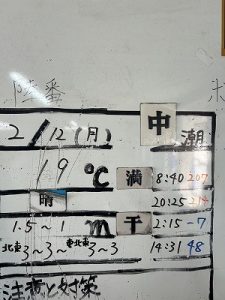 陸番
2/12(月) 中潮
19℃ 満 8:40 207
晴 20:25 214
1.5~1 m 干 2:15 -7
北東3~3~東北東3~3 14:31 48
注意と対策